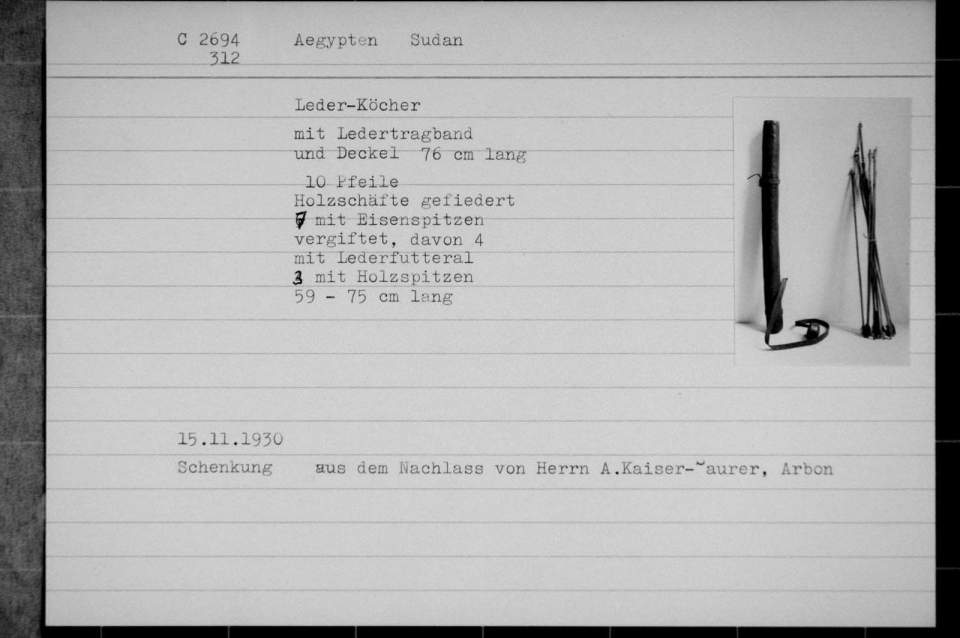 C 2694 Aegypten Sudan
312
Leder-Köcher
mit Ledertragband
und Deckel 76 cm lang
10 Pfeile
Holzschäfte gefiedert
7 mit Eisenspitzen
vergiftet, davon 4
mit Lederfutteral
3 mit Holzspitzen
59 - 75 cm lang
15.11.1930
Schenkung aus dem Nachlass von Herrn A.Kaiser- Arbon